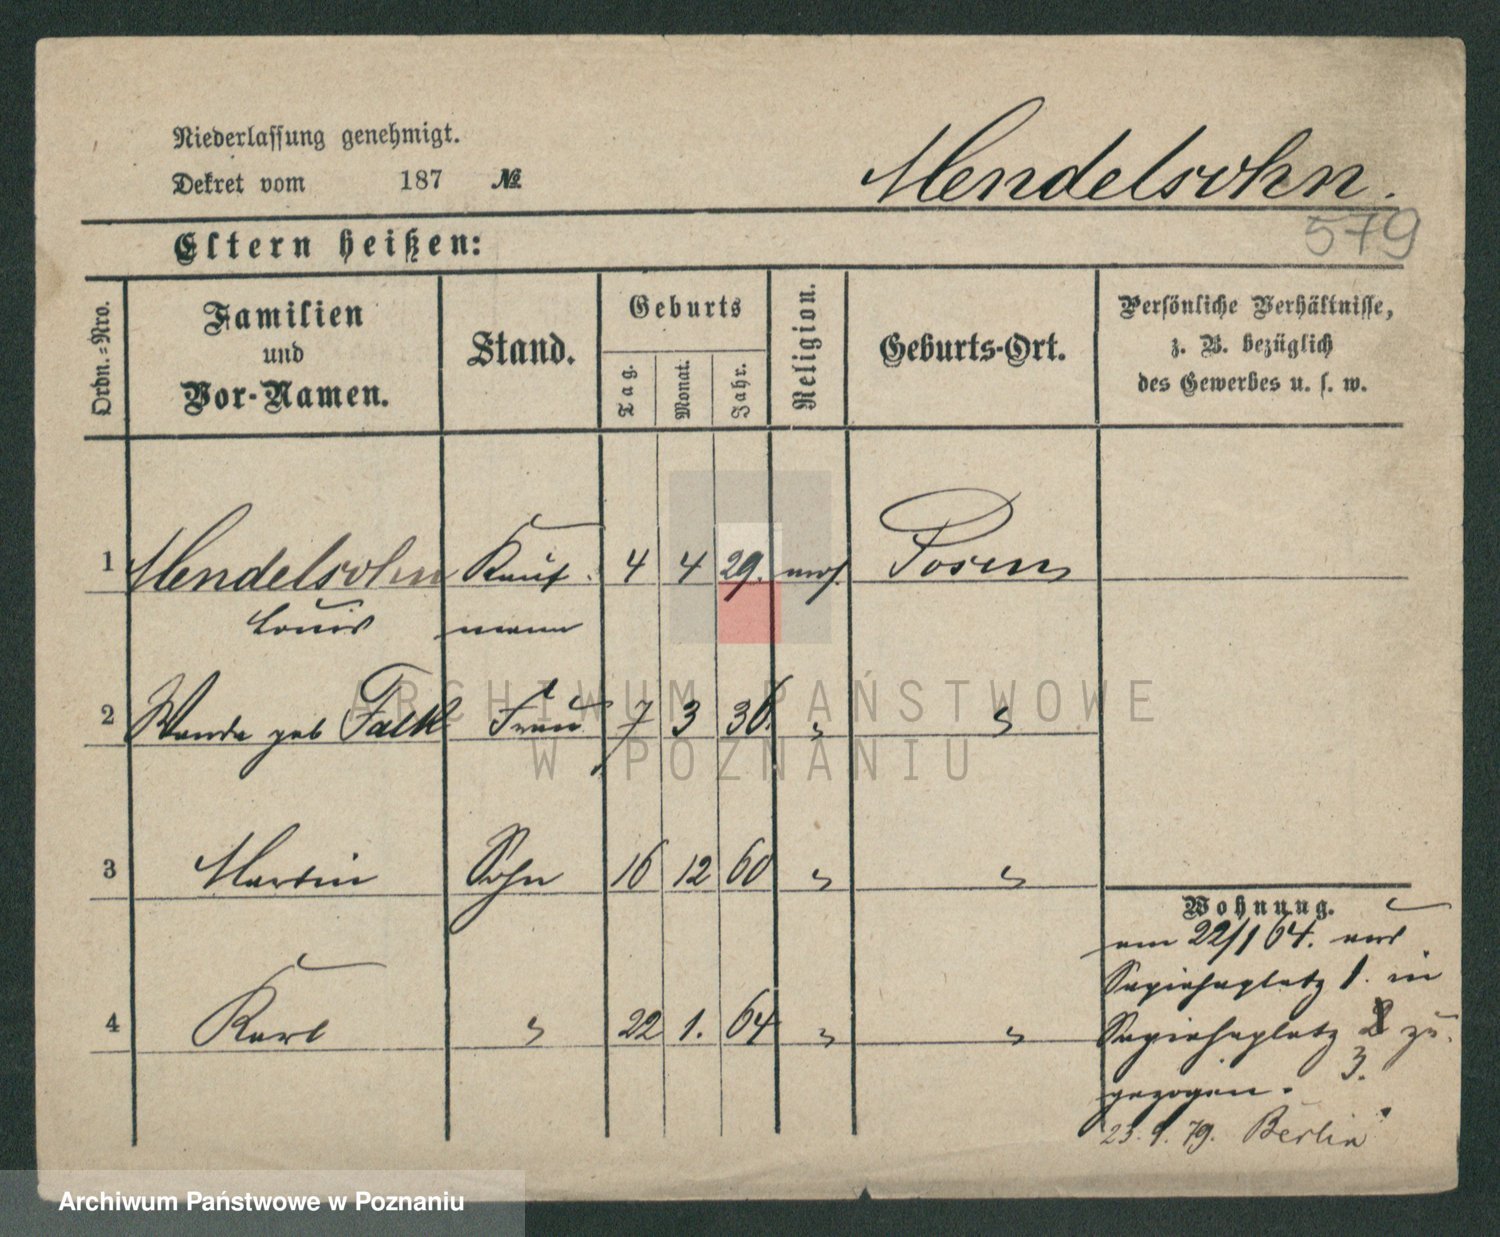 Niederlassung genehmigt.
Dekret vom 187 №
Mendelsohn.
579
Eltern heißen:
Ordn.-Nro.
Familien
und
Vor-Namen.
Stand.
Geburts
Tag.
Monat.
Jahr.
Religion.
Geburts-Ort.
Persönliche Verhältnisse,
z. B. bezüglich
des Gewerbes u. s. w.
1 Mendelsohn Kauf- 4 4 29. mos. Posen
Louis mann
2 Wanda geb Falk Frau 7 3 36. " "
3 Martin Sohn 16 12 60 " "
4 Karl " 22 1. 64 " "
Wohnung.
am 22/1 64. von
Sapiehaplatz 1. in
Sapiehaplatz 2 zu-
3.
gezogen.
23. 9. 79. Berlin
ARCHIWUM PAŃSTWOWE
W POZNANIU
Archiwum Państwowe w Poznaniu